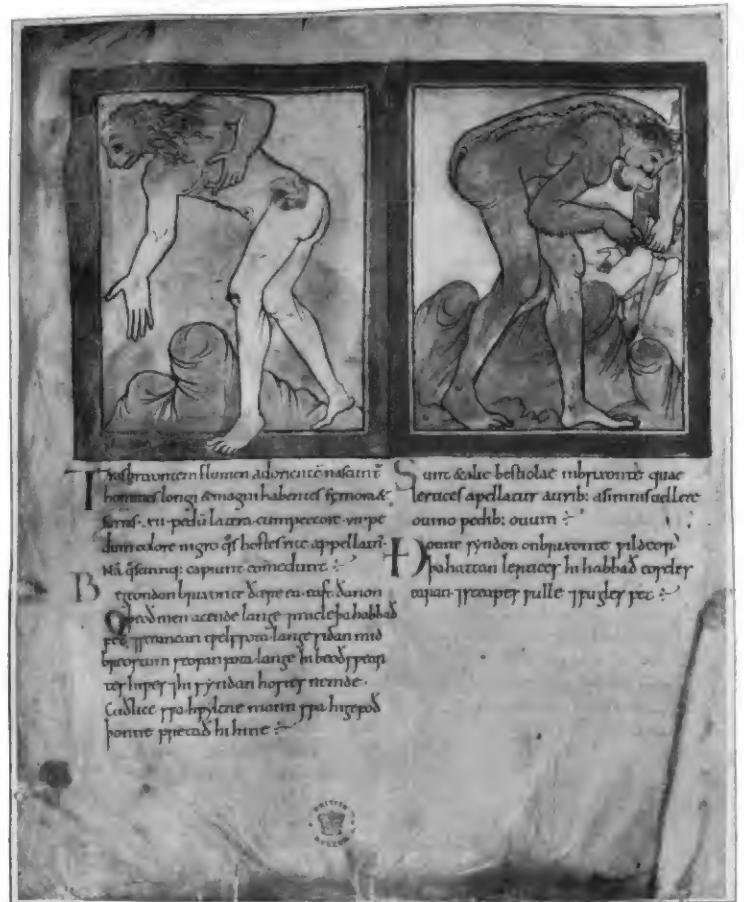 Transbrixontem flumen adorientē nascunt̄
homines longi & magni habentes femora &
surras .xii. pedū latera cum pectore .vii. pe
dum colore nigro q̄s hostes rite appellam̄.
Nā q̄scunq; capiunt comedunt :
Begeondon brixonte ðære ea. east ðanon
beoð men acende lange ⁊ micle þa habbað
fet ⁊ sceancan tƿelf fota lange sidan mid
breostum seofan fota lange hi beoð sƿear
tes hiƿes ⁊ hi syndan hostes nemde.
Cuðlice sƿa hƿylcne mann sƿa hi gefoð
þonne fretað hi hine :
Sunt & alie bestiolae inbrixonte quae
lertices apellatur aurib: asininis uellere
ouino pedib: ouium :
Ðonne syndon onbrixonte ƿildeor
þa hattan lertices hi habbað eoseles
earan ⁊ sceapes ƿulle ⁊ fugles fet :
BRITISH
MUSEUM